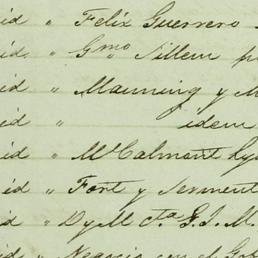 id " Felix Guerrero
id " Gmo Sillem p
id " Manning y M
id " idem
id " McCalmont Gy
id " Fort y Serment
id " D y M Cta G. J. M.
id " Negocio con el Gob